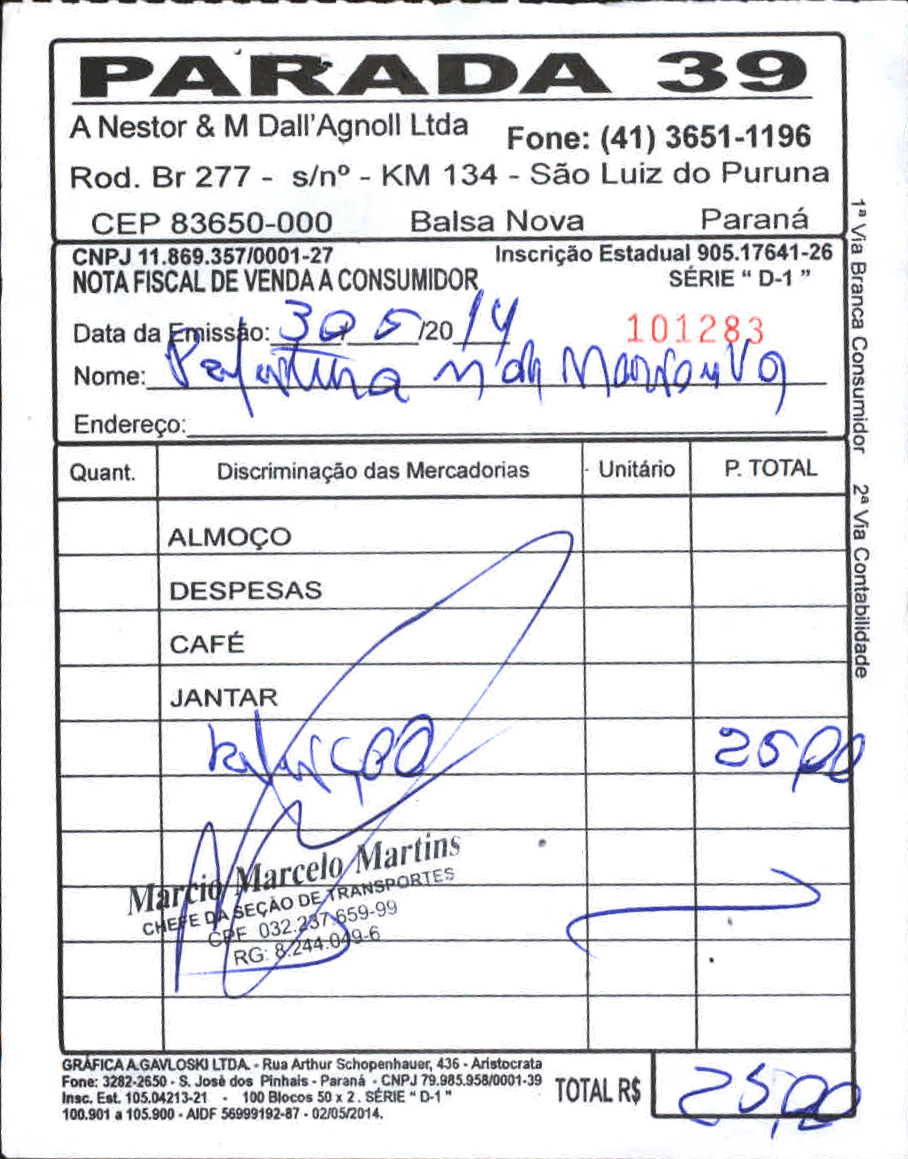 PARADA 39
A Nestor & M Dall'Agnoll Ltda Fone: (41) 3651-1196
Rod. Br 277 - s/nº - KM 134 - São Luiz do Puruna
CEP 83650-000 Balsa Nova Paraná
CNPJ 11.869.357/0001-27 Inscrição Estadual 905.17641-26
NOTA FISCAL DE VENDA A CONSUMIDOR SÉRIE “ D-1 ”
Data da Emissão: 30 5 /20 14 101283
Nome: Prefeitura M de
Endereço:
Quant. Discriminação das Mercadorias Unitário P. TOTAL
ALMOÇO
DESPESAS
CAFÉ
JANTAR
Refeição 25,00
Marcio Marcelo Martins
CHEFE DA SEÇÃO DE TRANSPORTES
CPF 032.237.659-99
RG: 8.244.049-6
GRÁFICA A.GAVLOSKI LTDA. - Rua Arthur Schopenhauer, 436 - Aristocrata
Fone: 3282-2650 - S. José dos Pinhais - Paraná - CNPJ 79.985.958/0001-39
Insc. Est. 105.04213-21 - 100 Blocos 50 x 2. SÉRIE “ D-1 ”
100.901 a 105.900 - AIDF 56999192-87 - 02/05/2014.
TOTAL R$ 25,00
1ª Via Branca Consumidor 2ª Via Contabilidade